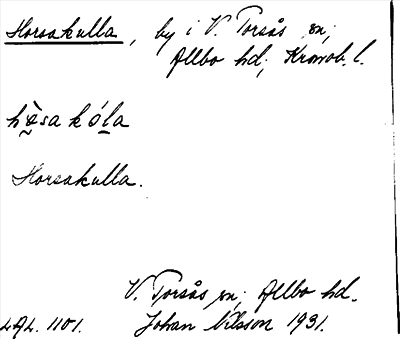 Horsakulla, by i V. Torsås sn;
Allbo hd; Kronob. l.
hòsa kóla
Horsakulla.
V. Torsås sn; Allbo hd.
LAL. 1101. Johan Nilsson 1931.